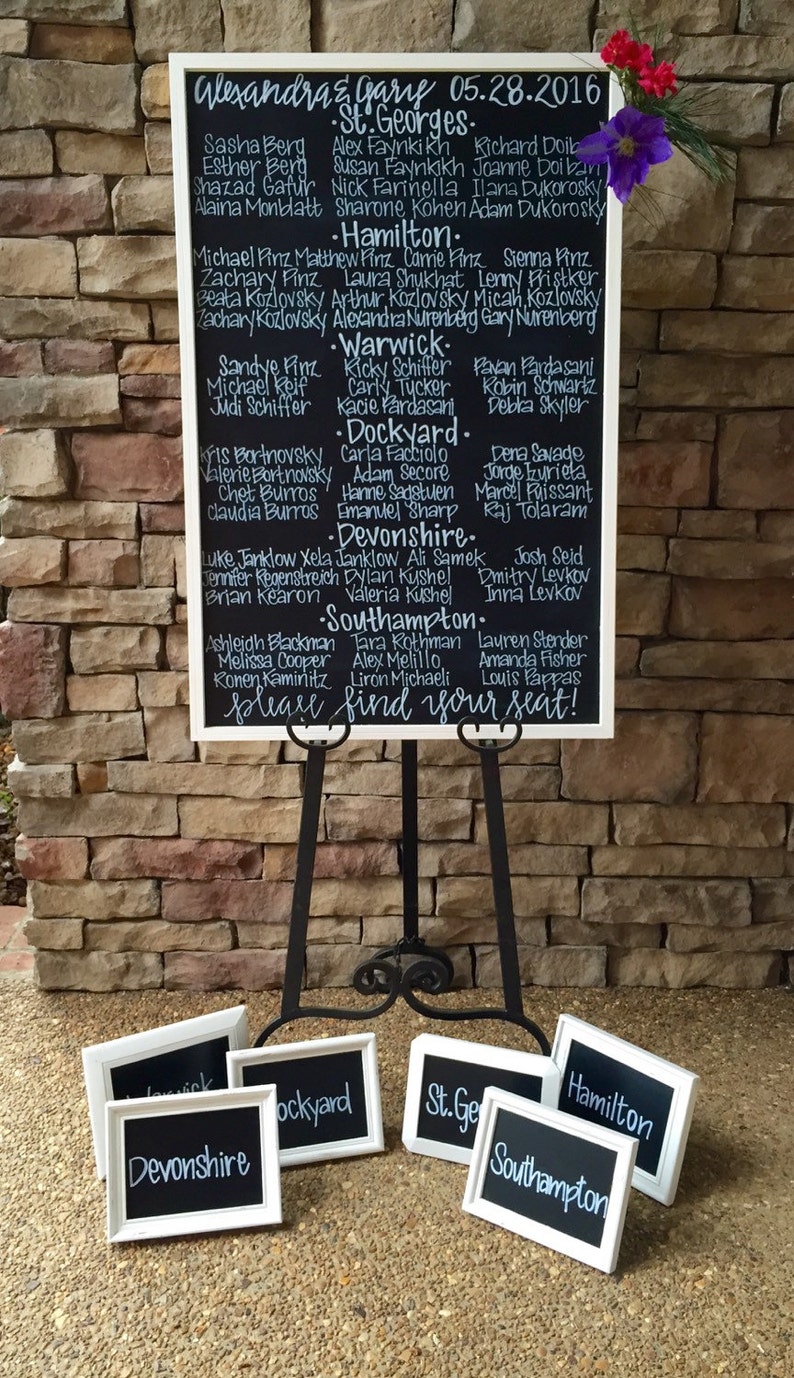 Alexandra & Gary 05.28.2016
·St. Georges·
Sasha Berg Alex Faynkikh Richard Doiban
Esther Berg Susan Faynkikh Joanne Doiban
Shazad Gafur Nick Farinella Ilana Dukorosky
Alaina Monblatt Sharone Kohen Adam Dukorosky
·Hamilton·
Michael Pinz Matthew Pinz Carrie Pinz Sienna Pinz
Zachary Pinz Laura Shukhat Lenny Pristker
Beata Kozlovsky Arthur Kozlovsky Micah Kozlovsky
Zachary Kozlovsky Alexandra Nurenberg Gary Nurenberg
·Warwick·
Sandye Pinz Ricky Schiffer Pavan Pardasani
Michael Reif Carly Tucker Robin Schwartz
Judi Schiffer Kacie Pardasani Debra Skyler
·Dockyard·
Kris Bortnovsky Carla Facciolo Dena Savage
Valerie Bortnovsky Adam Secore Jorge Izurieta
Chet Burros Hanne Sadstuen Marcel Puissant
Claudia Burros Emanuel Sharp Raj Tolaram
·Devonshire·
Luke Janklow Xela Janklow Ali Samek Josh Seid
Jennifer Regenstreich Dylan Kushel Dmitry Levkov
Brian Kearon Valeria Kushel Inna Levkov
·Southampton·
Ashleigh Blackman Tara Rothman Lauren Stender
Melissa Cooper Alex Melillo Amanda Fisher
Ronen Kaminitz Liron Michaeli Louis Pappas
please find your seat!
Warwick
ockyard
St. Ge
Hamilton
Devonshire
Southampton